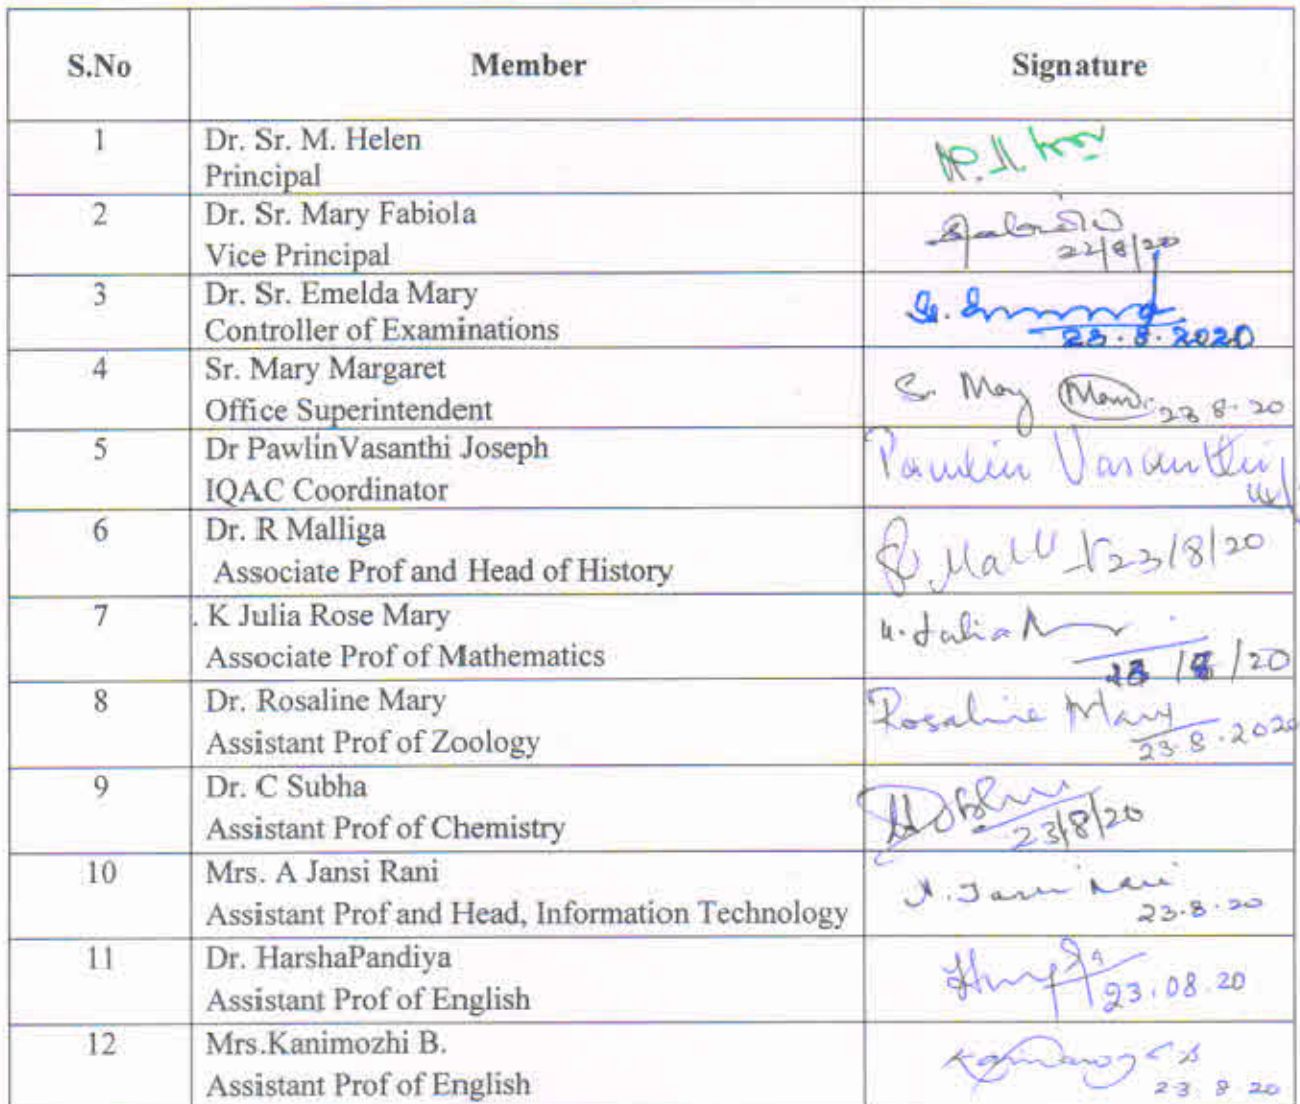 S.No Member Signature
1 Dr. Sr. M. Helen
Principal
2 Dr. Sr. Mary Fabiola
Vice Principal 22/8/20
3 Dr. Sr. Emelda Mary
Controller of Examinations 23.8.2020
4 Sr. Mary Margaret
Office Superintendent Sr. Mary 23 8.20
5 Dr PawlinVasanthi Joseph
IQAC Coordinator Pawlin Vasanthi
6 Dr. R Malliga
Associate Prof and Head of History 23/8/20
7 . K Julia Rose Mary
Associate Prof of Mathematics /20
8 Dr. Rosaline Mary Rosaline Mary
Assistant Prof of Zoology 23.8.2020
9 Dr. C Subha
Assistant Prof of Chemistry 23/8/20
10 Mrs. A Jansi Rani
Assistant Prof and Head, Information Technology 23.8.20
11 Dr. HarshaPandiya
Assistant Prof of English 23.08.20
12 Mrs.Kanimozhi B.
Assistant Prof of English 23.8.20